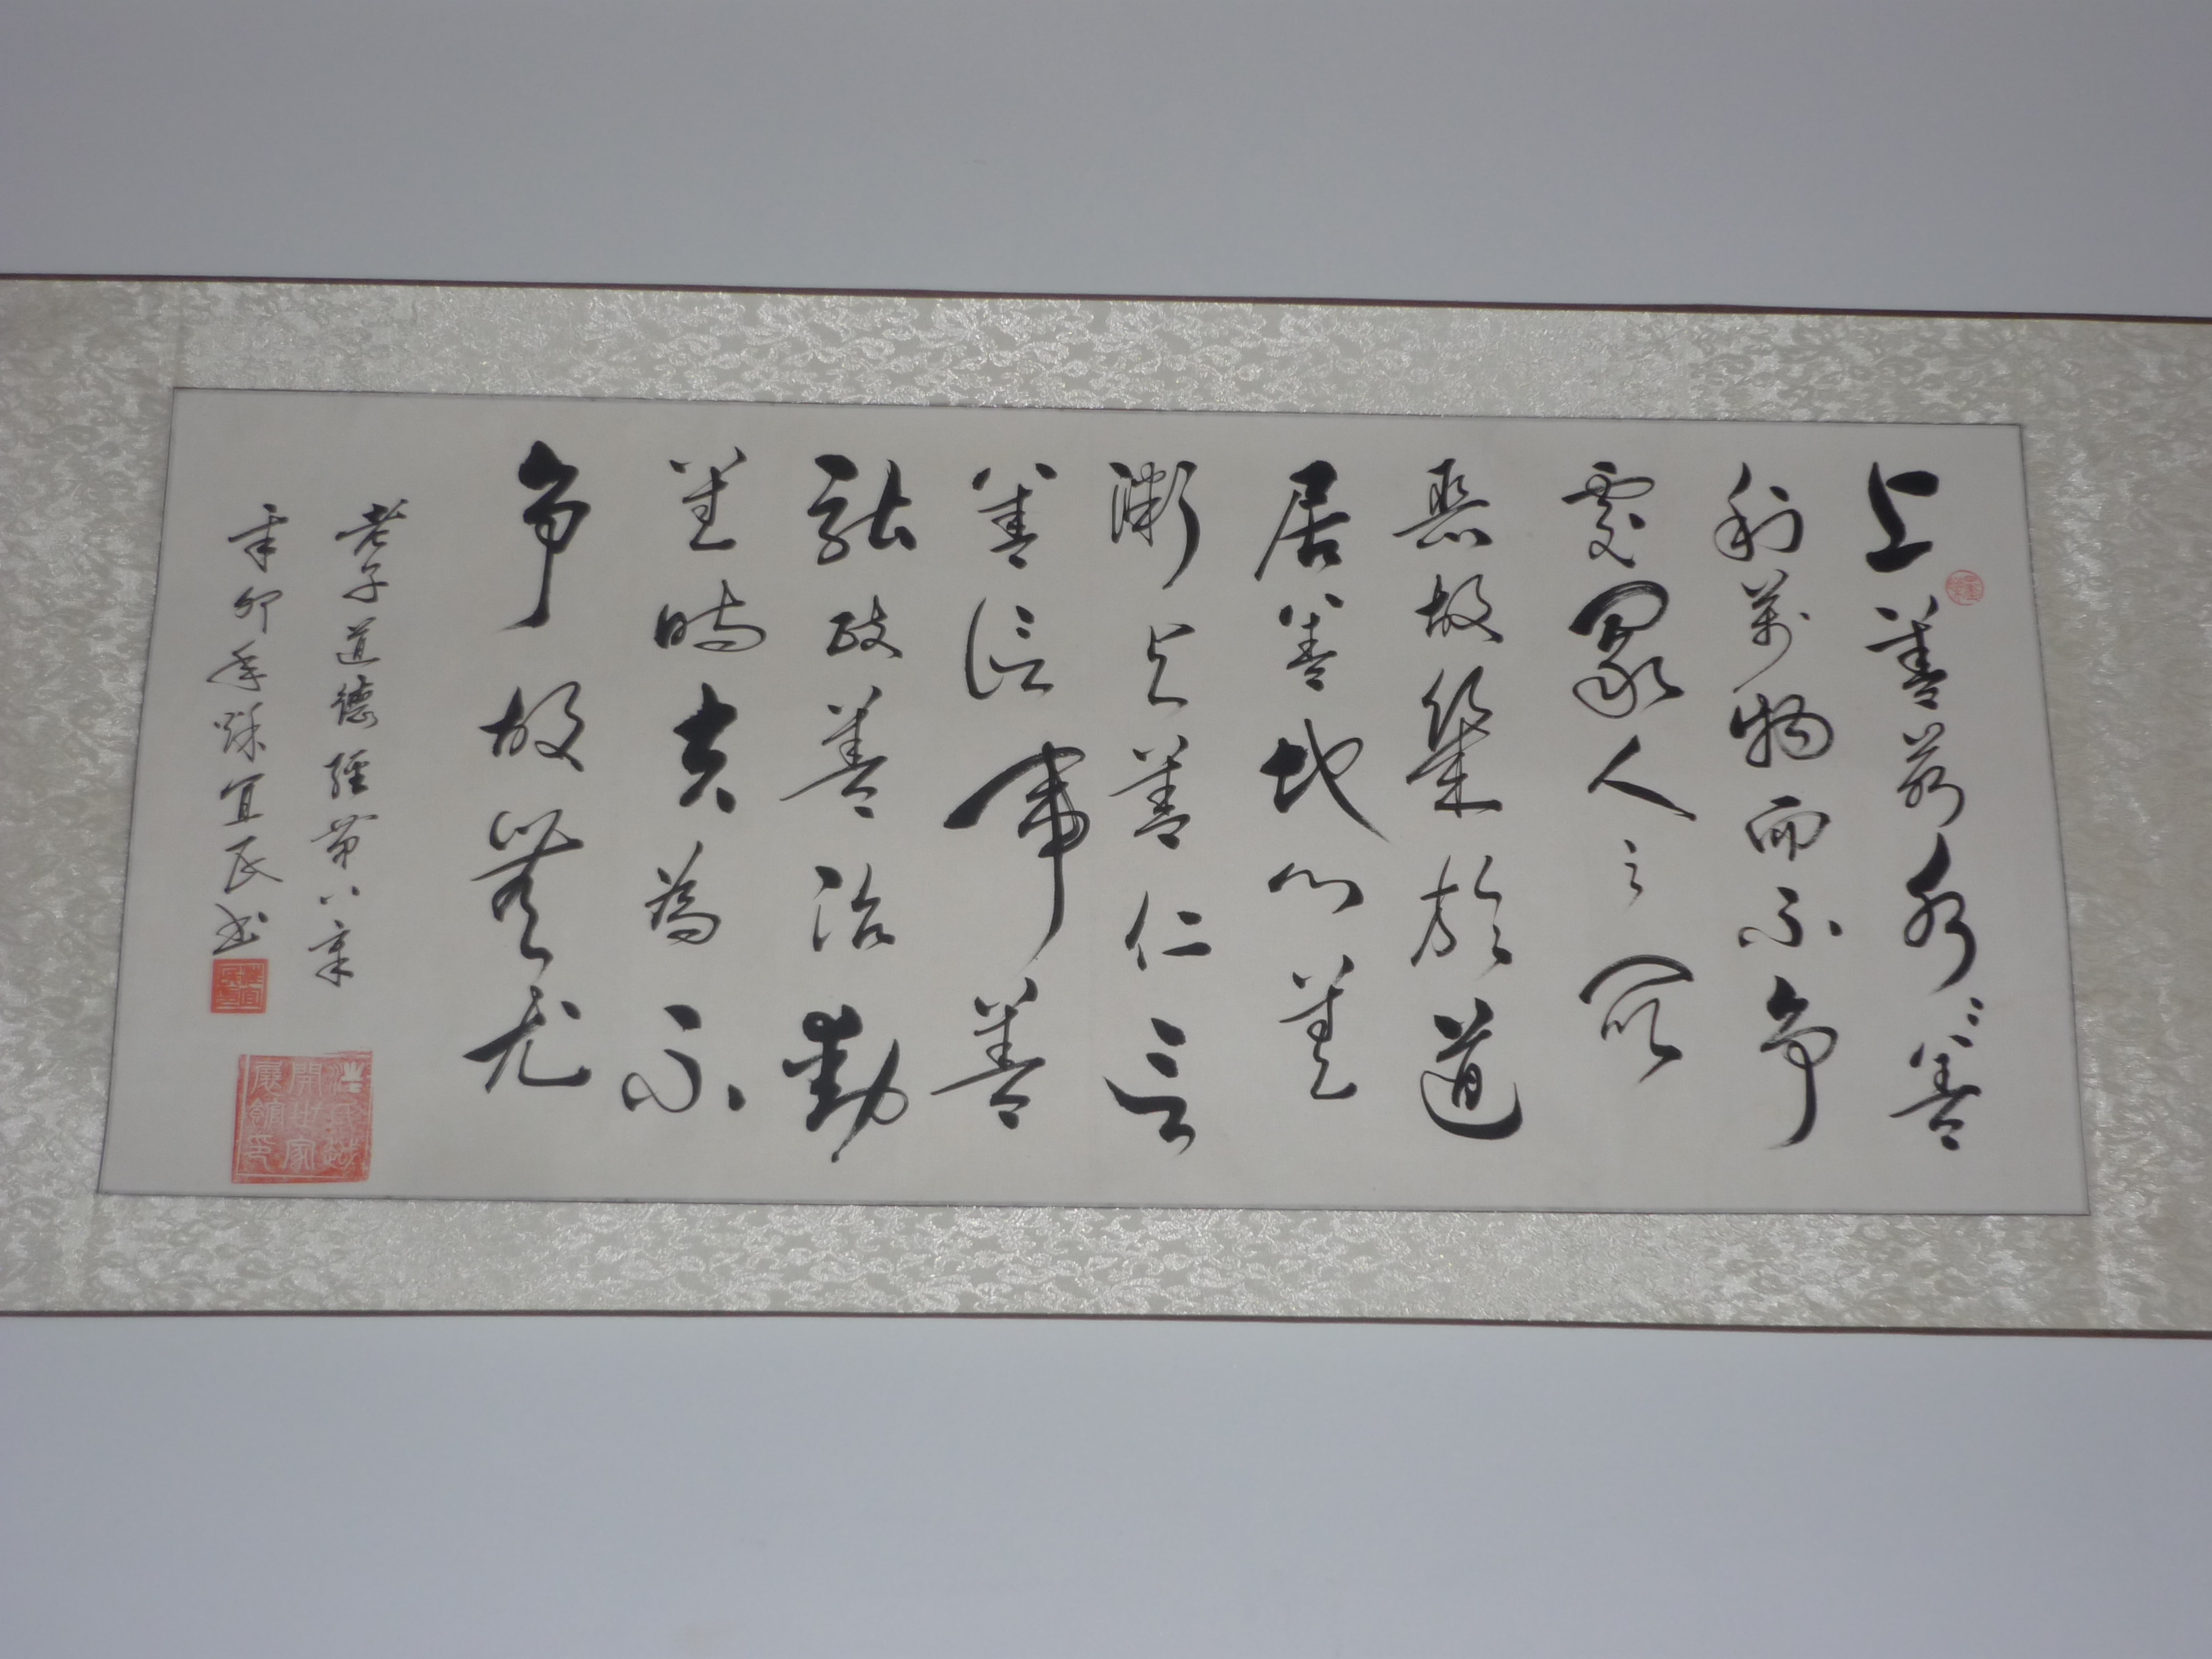 上善若水〻善
利萬物而不争
處衆人之所
惡故幾於道
居善地心善
淵与善仁言
善信事善
能政善治動
善時夫為不
争故無尤
老子道德經第八章
辛卯年秋宜民书